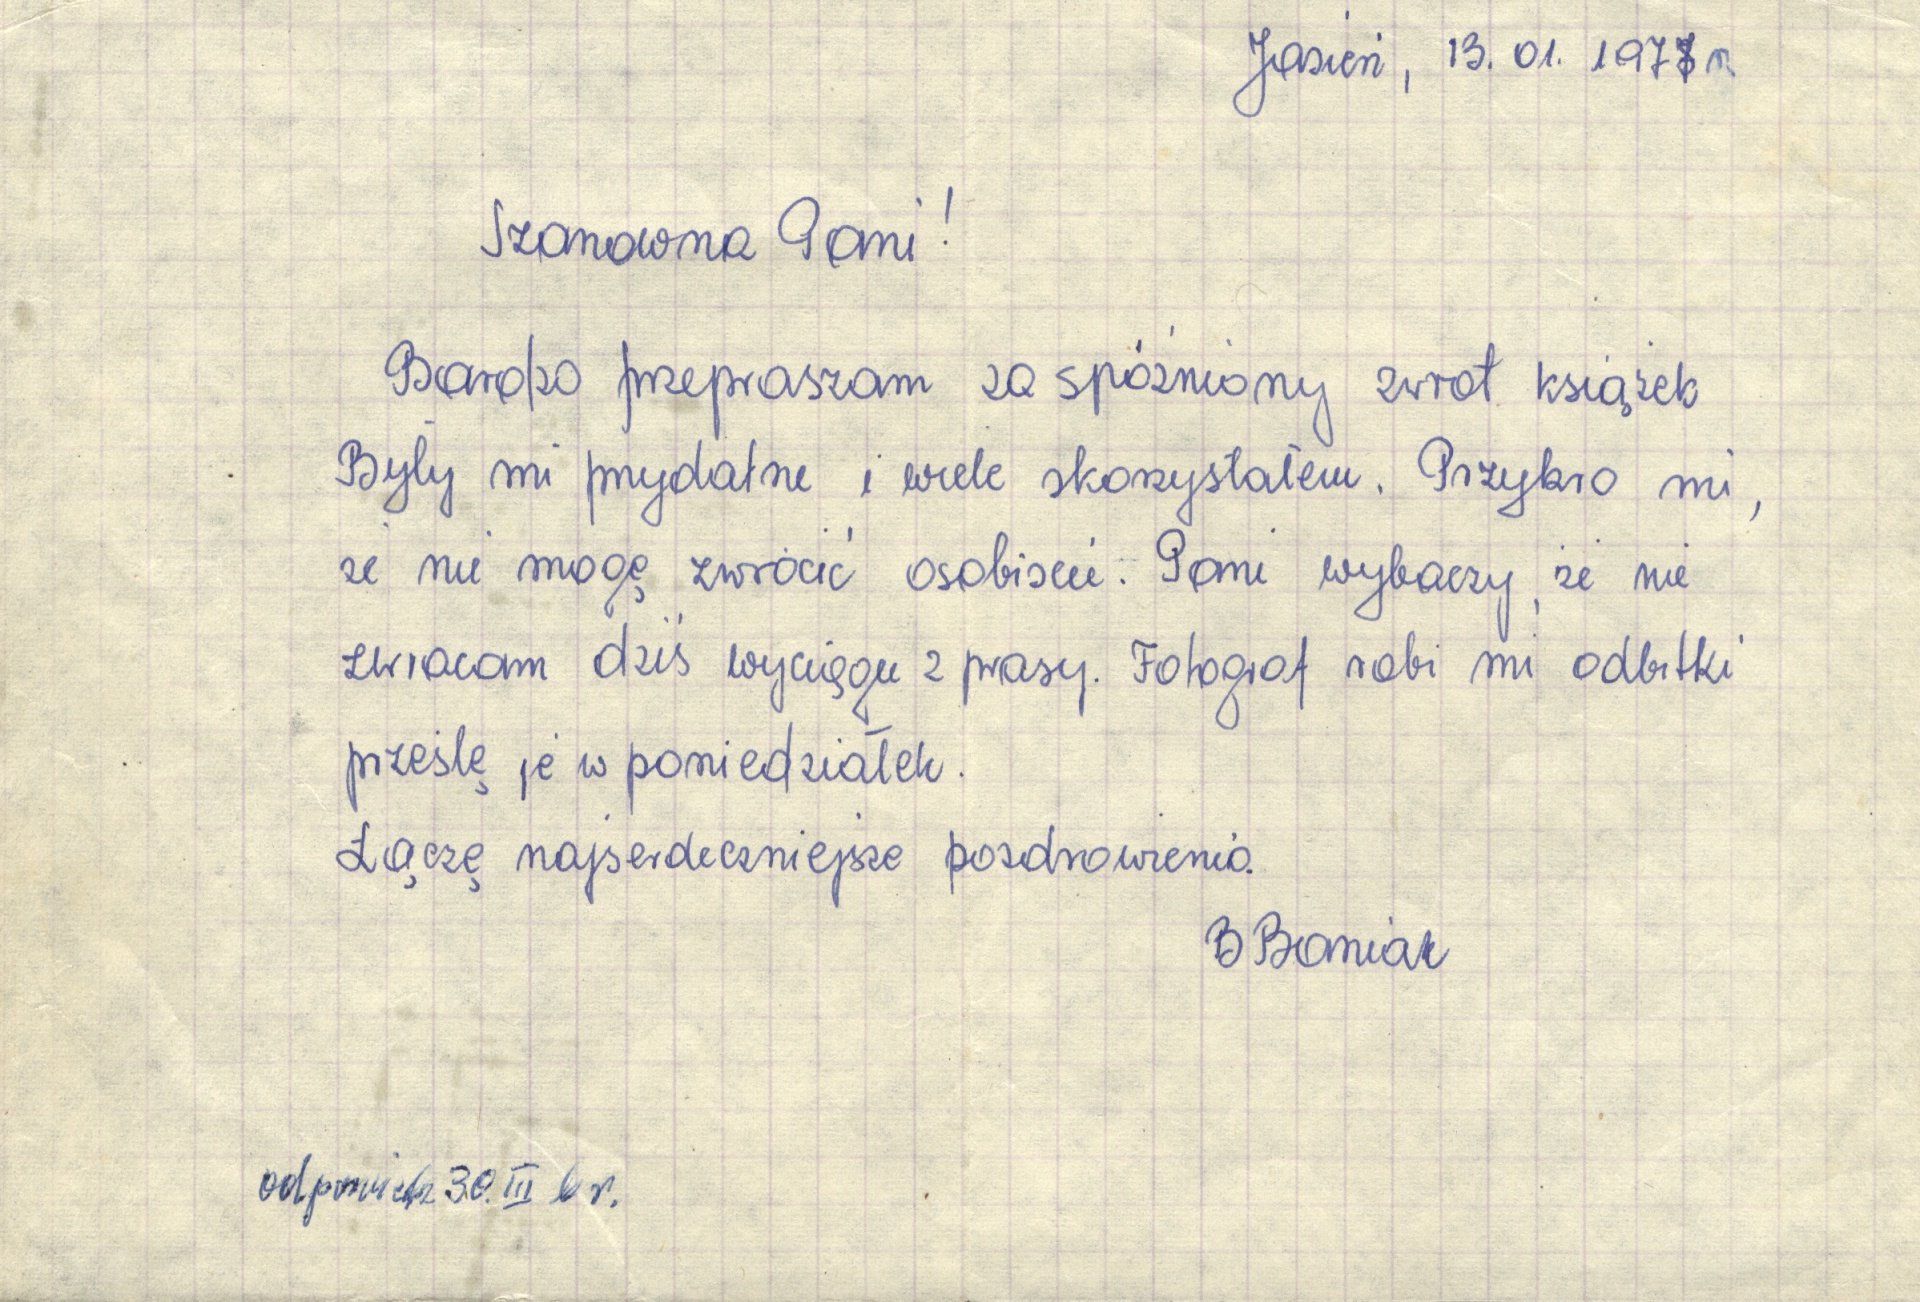 Jasień, 13. 01. 1978 r.
Szanowna Pani!
Bardzo przepraszam za spóźniony zwrot książek
Były mi przydatne i wiele skorzystałem. Przykro mi,
że nie mogę zwrócić osobiście. Pani wybaczy, że nie
zwracam dziś wyciągu z prasy. Fotograf robi mi odbitki
prześlę je w poniedziałek.
Łączę najserdeczniejsze pozdrowienia.
B Baniak
odpowiedź 30. III b r.